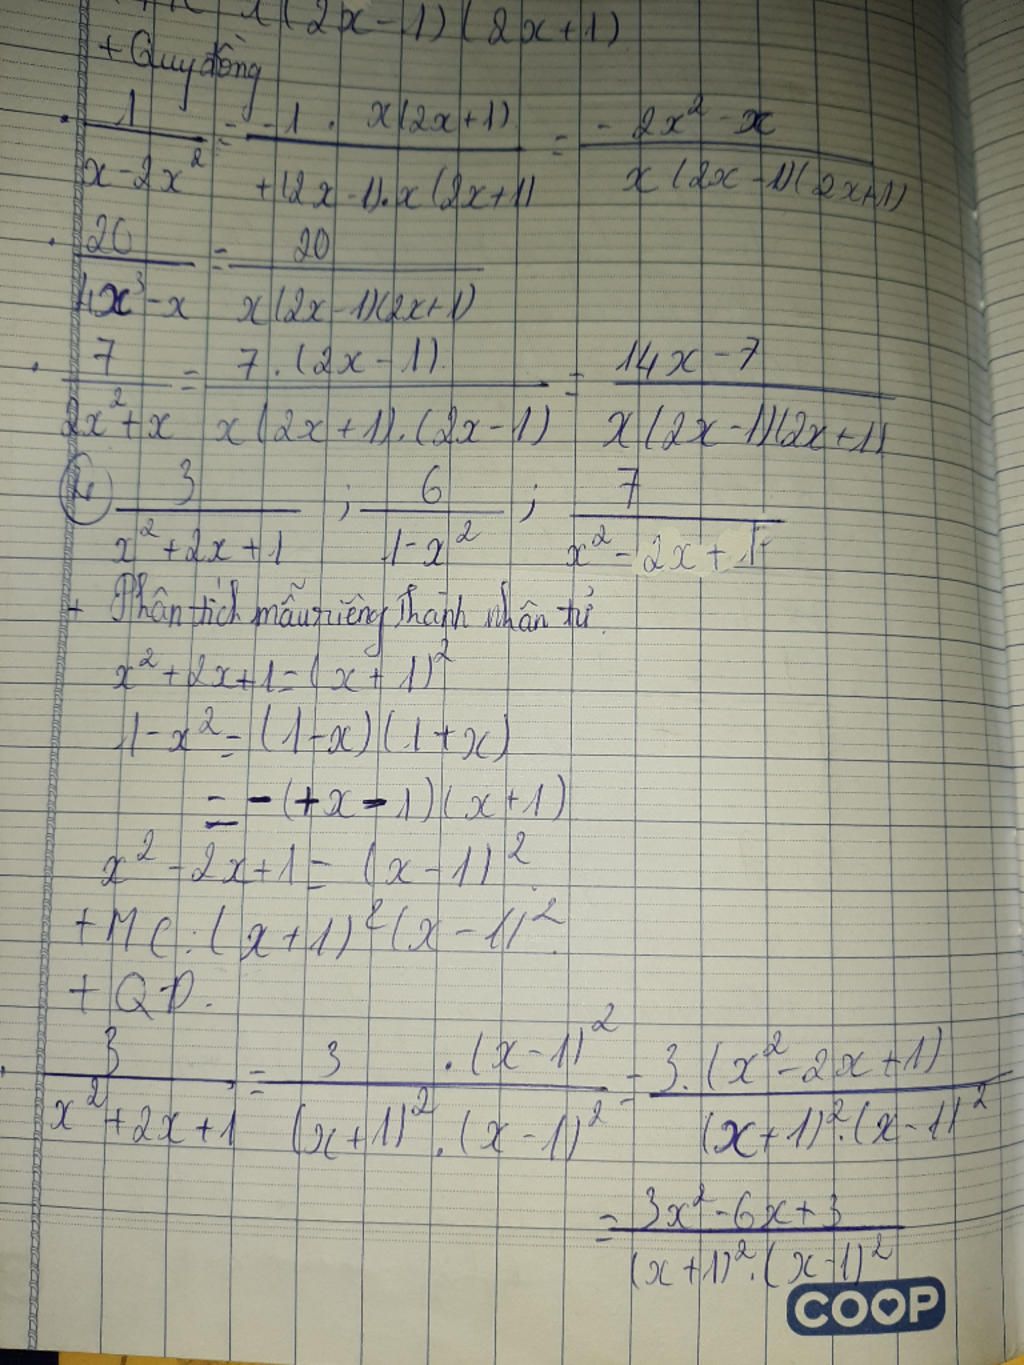 x(2x-1)(2x+1)
+ Quy đồng
. 1/(x-2x²) = (-1 . x(2x+1))/(+(2x-1).x(2x+1)) = (-2x²-x)/(x(2x-1)(2x+1))
. 20/(4x³-x) = 20/(x(2x-1)(2x+1))
. 7/(2x²+x) = (7.(2x-1))/(x(2x+1).(2x-1)) = (14x-7)/(x(2x-1)(2x+1))
3/(x²+2x+1) ; 6/(1-x²) ; 7/(x²-2x+1)
+ Phân tích mẫu riêng thành nhân tử.
x²+2x+1=(x+1)²
1-x²=(1-x)(1+x)
= -(+x-1)(x+1)
x²-2x+1=(x-1)²
+MC:(x+1)²(x-1)²
+ QĐ.
. 3/(x²+2x+1) = (3 .(x-1)²)/((x+1)².(x-1)²) = (3.(x²-2x+1))/((x+1)².(x-1)²)
= (3x²-6x+3)/((x+1)².(x-1)²)
COOP